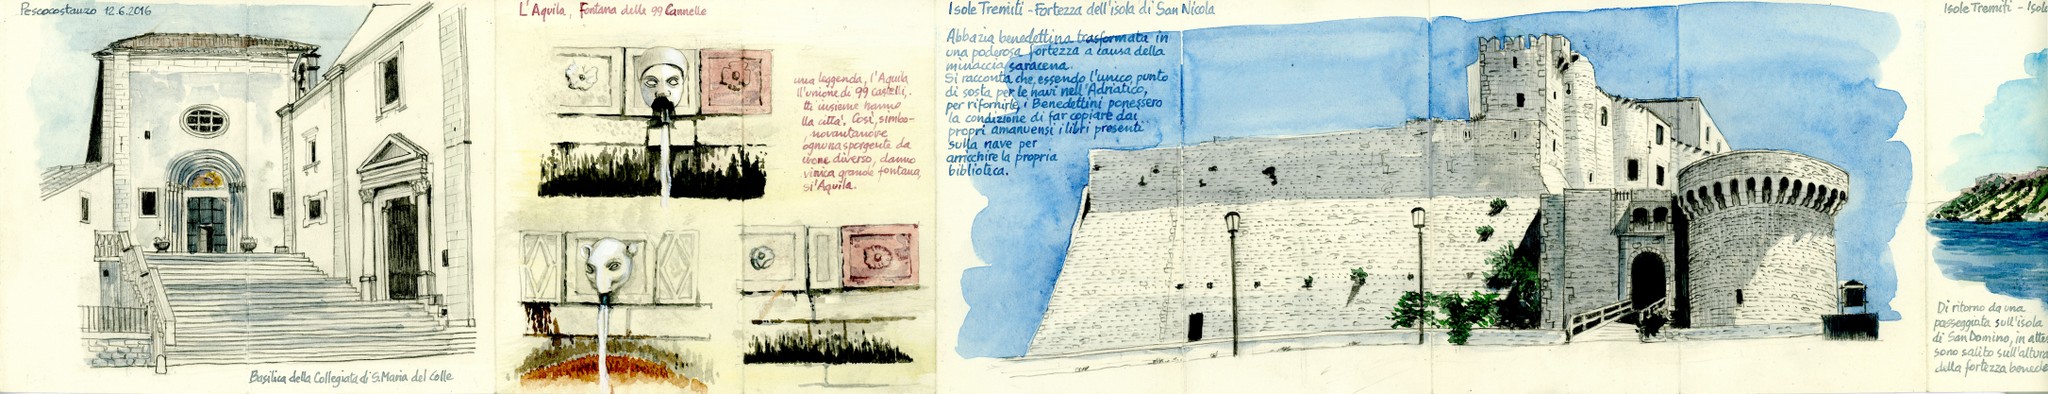 Pescocostanzo 12.6.2016
Basilica della Collegiata di S. Maria del Colle
L'Aquila, Fontana delle 99 Cannelle
una leggenda, l'Aquila
ll'unione di 99 castelli,
tti insieme hanno
lla città. Così, simbo-
novantanove
ognuna sporgente da
erone diverso, danno
vinica grande fontana,
sì Aquila.
Isole Tremiti - Fortezza dell'isola di San Nicola
Abbazia benedettina trasformata in
una poderosa fortezza a causa della
minaccia saracena.
Si racconta che, essendo l'unico punto
di sosta per le navi nell'Adriatico,
per rifornirle, i Benedettini ponessero
la condizione di far copiare dai
propri amanuensi i libri presenti
sulla nave per
arricchire la propria
biblioteca.
Isole Tremiti - Isole
Di ritorno da una
passeggiata sull'isola
di San Domino, in attes
sono salito sull'altura
della fortezza benede